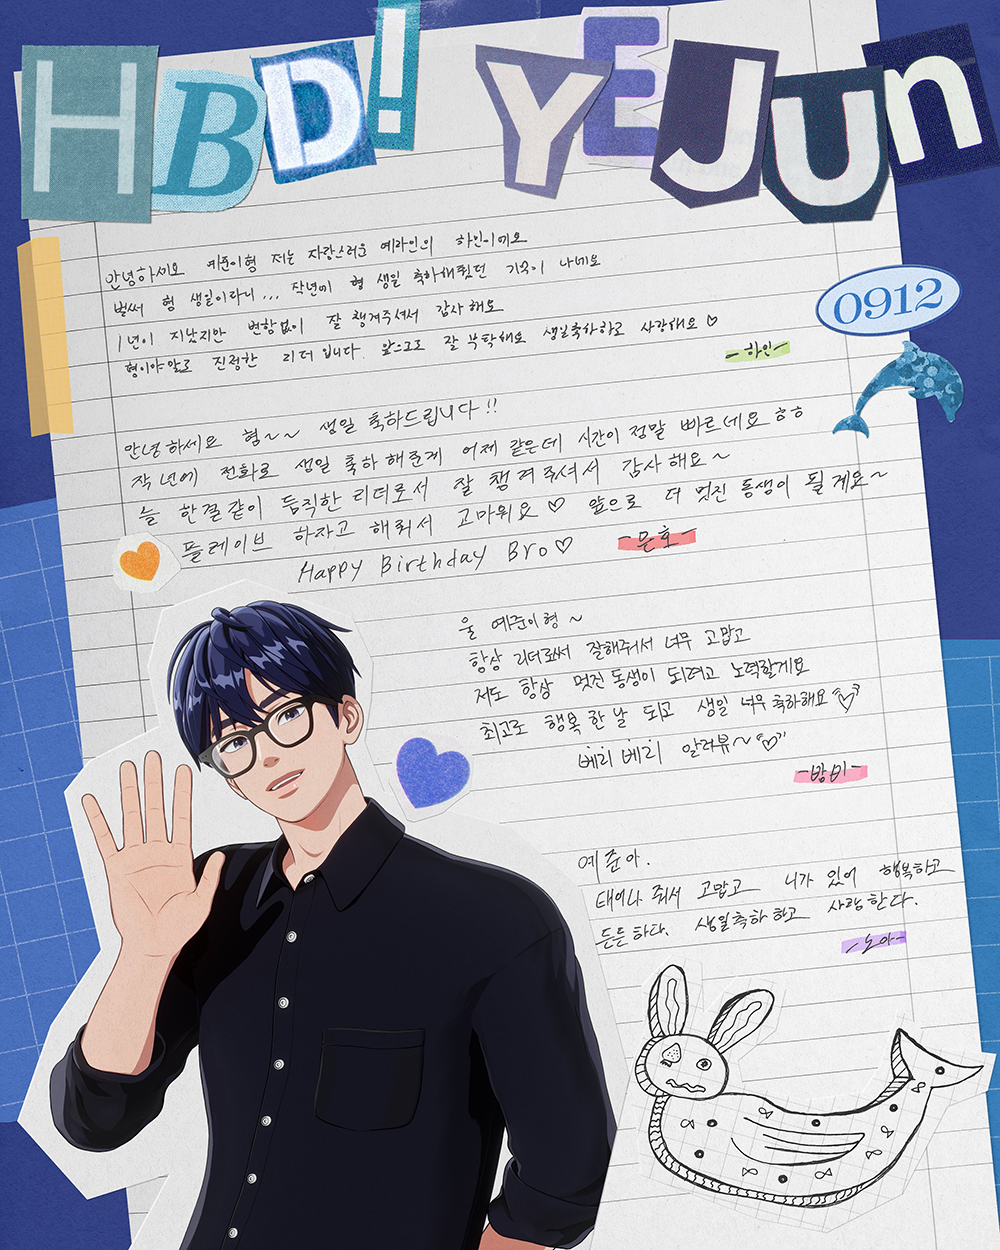 HBD! YEJUN
안녕하세요 예준이형 저는 자랑스러운 예라인의 하인이에요
벌써 형 생일이라니... 작년에 형 생일 축하해줬던 기억이 나네요
1년이 지났지만 변함없이 잘 챙겨주셔서 감사해요
형이야말로 진정한 리더입니다. 앞으로도 잘 부탁해요 생일축하하고 사랑해요♡
-하인-
0912
안녕하세요 형~~ 생일 축하드립니다!!
작년에 전화로 생일 축하 해준게 어제 같은데 시간이 정말 빠르네요 ㅎㅎ
늘 한결같이 듬직한 리더로서 잘 챙겨주셔서 감사해요~
플레이브 하자고 해줘서 고마워요♡ 앞으로 더 멋진 동생이 될게요~
Happy Birthday Bro♡
-은호-
울 예준이형~
항상 리더로써 잘해줘서 너무 고맙고
저도 항상 멋진 동생이 되려고 노력할게요
최고로 행복한 날 되고 생일 너무 축하해요 "♡"
베리 베리 알러뷰~ "♡"
-밤비-
예준아.
태어나 줘서 고맙고 니가 있어 행복하고
든든하다. 생일축하 하고 사랑한다.
-노아-